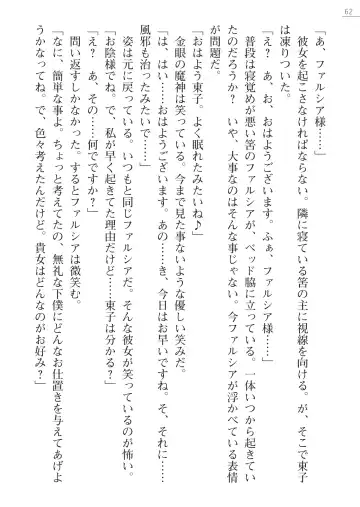 62
「あ、ファルシア様……」
彼女を起こさなければならない。隣に寝ている筈の主に視線を向ける。が、そこで東子
は凍りついた。
「え？　あ、お、おはようございます。ふぁ、ファルシア様……」
普段は寝覚めが悪い筈のファルシアが、ベッド脇に立っている。一体いつから起きてい
たのだろうか？　いや、大事なのはそんな事じゃない。今ファルシアが浮かべている表情
が問題だ。
「おはよう東子。よく眠れたみたいね♪」
金眼の魔神は笑っている。今まで見た事ないような優しい笑みだ。
「は、はい……おはようございます。あの……き、今日はお早いですね。そ、それに……
風邪も治ったみたいで……」
姿は元に戻っている。いつもと同じファルシアだ。そんな彼女が笑っているのが怖い。
「お陰様でね。で、私が早く起きてた理由だけど……東子は分かる？」
「え？　あ、その……何でですか？」
問い返すしかなかった。するとファルシアは微笑む。
「なに、簡単な事よ。ちょっと考えてたの、無礼な下僕にどんなお仕置きを与えてあげよ
うかなってね。で、色々考えたんだけど。貴女はどんなのがお好み？」